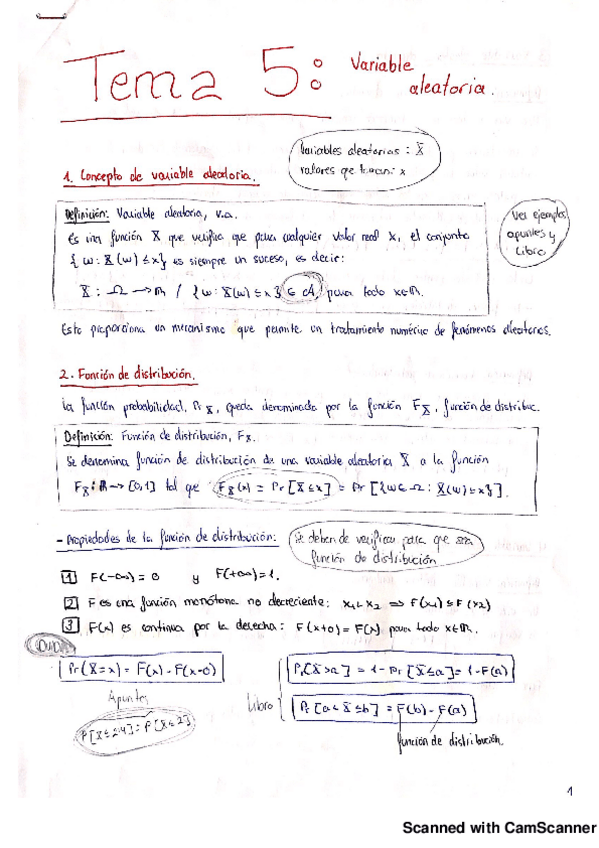 Tema 5: Variable aleatoria.
Variables aleatorias: X
valores que toman: x
1. Concepto de variable aleatoria.
Definición: Variable aleatoria, v.a.
Es una función X que verifica que para cualquier valor real x, el conjunto
{ω: X(ω) ≤ x} es siempre un suceso, es decir:
X: Ω → ℝ / {ω: X(ω) ≤ x} ∈ A, para todo x∈ℝ.
Ver ejemplos
apuntes y
libro
Esto proporciona un mecanismo que permite un tratamiento numérico de fenómenos aleatorios.
2. Función de distribución.
La función probabilidad, Pr X, queda denominada por la función F X, función de distribuc.
Definición: Función de distribución, FX.
Se denomina función de distribución de una variable aleatoria X a la función
FX: ℝ → [0,1] tal que FX(x) = Pr[X≤x] = Pr[{ω∈Ω: X(ω)≤x}].
- Propiedades de la función de distribución:
Se deben de verificar para que sea
función de distribución
1 F(-∞) = 0 y F(+∞) = 1.
2 F es una función monótona no decreciente: x1 < x2 ⇒ F(x1) ≤ F(x2)
3 F(x) es continua por la derecha: F(x+0) = F(x) para todo x∈ℝ.
DUDA
Pr(X=x) = F(x) - F(x-0)
Apuntes
Libro
Pr[X>a] = 1 - Pr[X≤a] = 1 - F(a)
Pr[a<X≤b] = F(b) - F(a)
función de distribución
1
Scanned with CamScanner